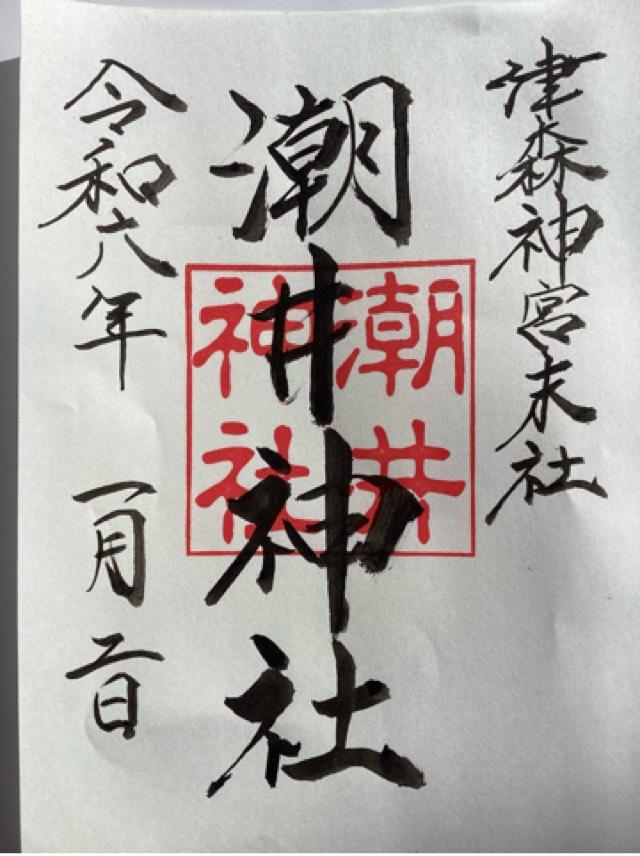 津森神宮末社
潮井神社
潮井
神社
令和六年一月二日